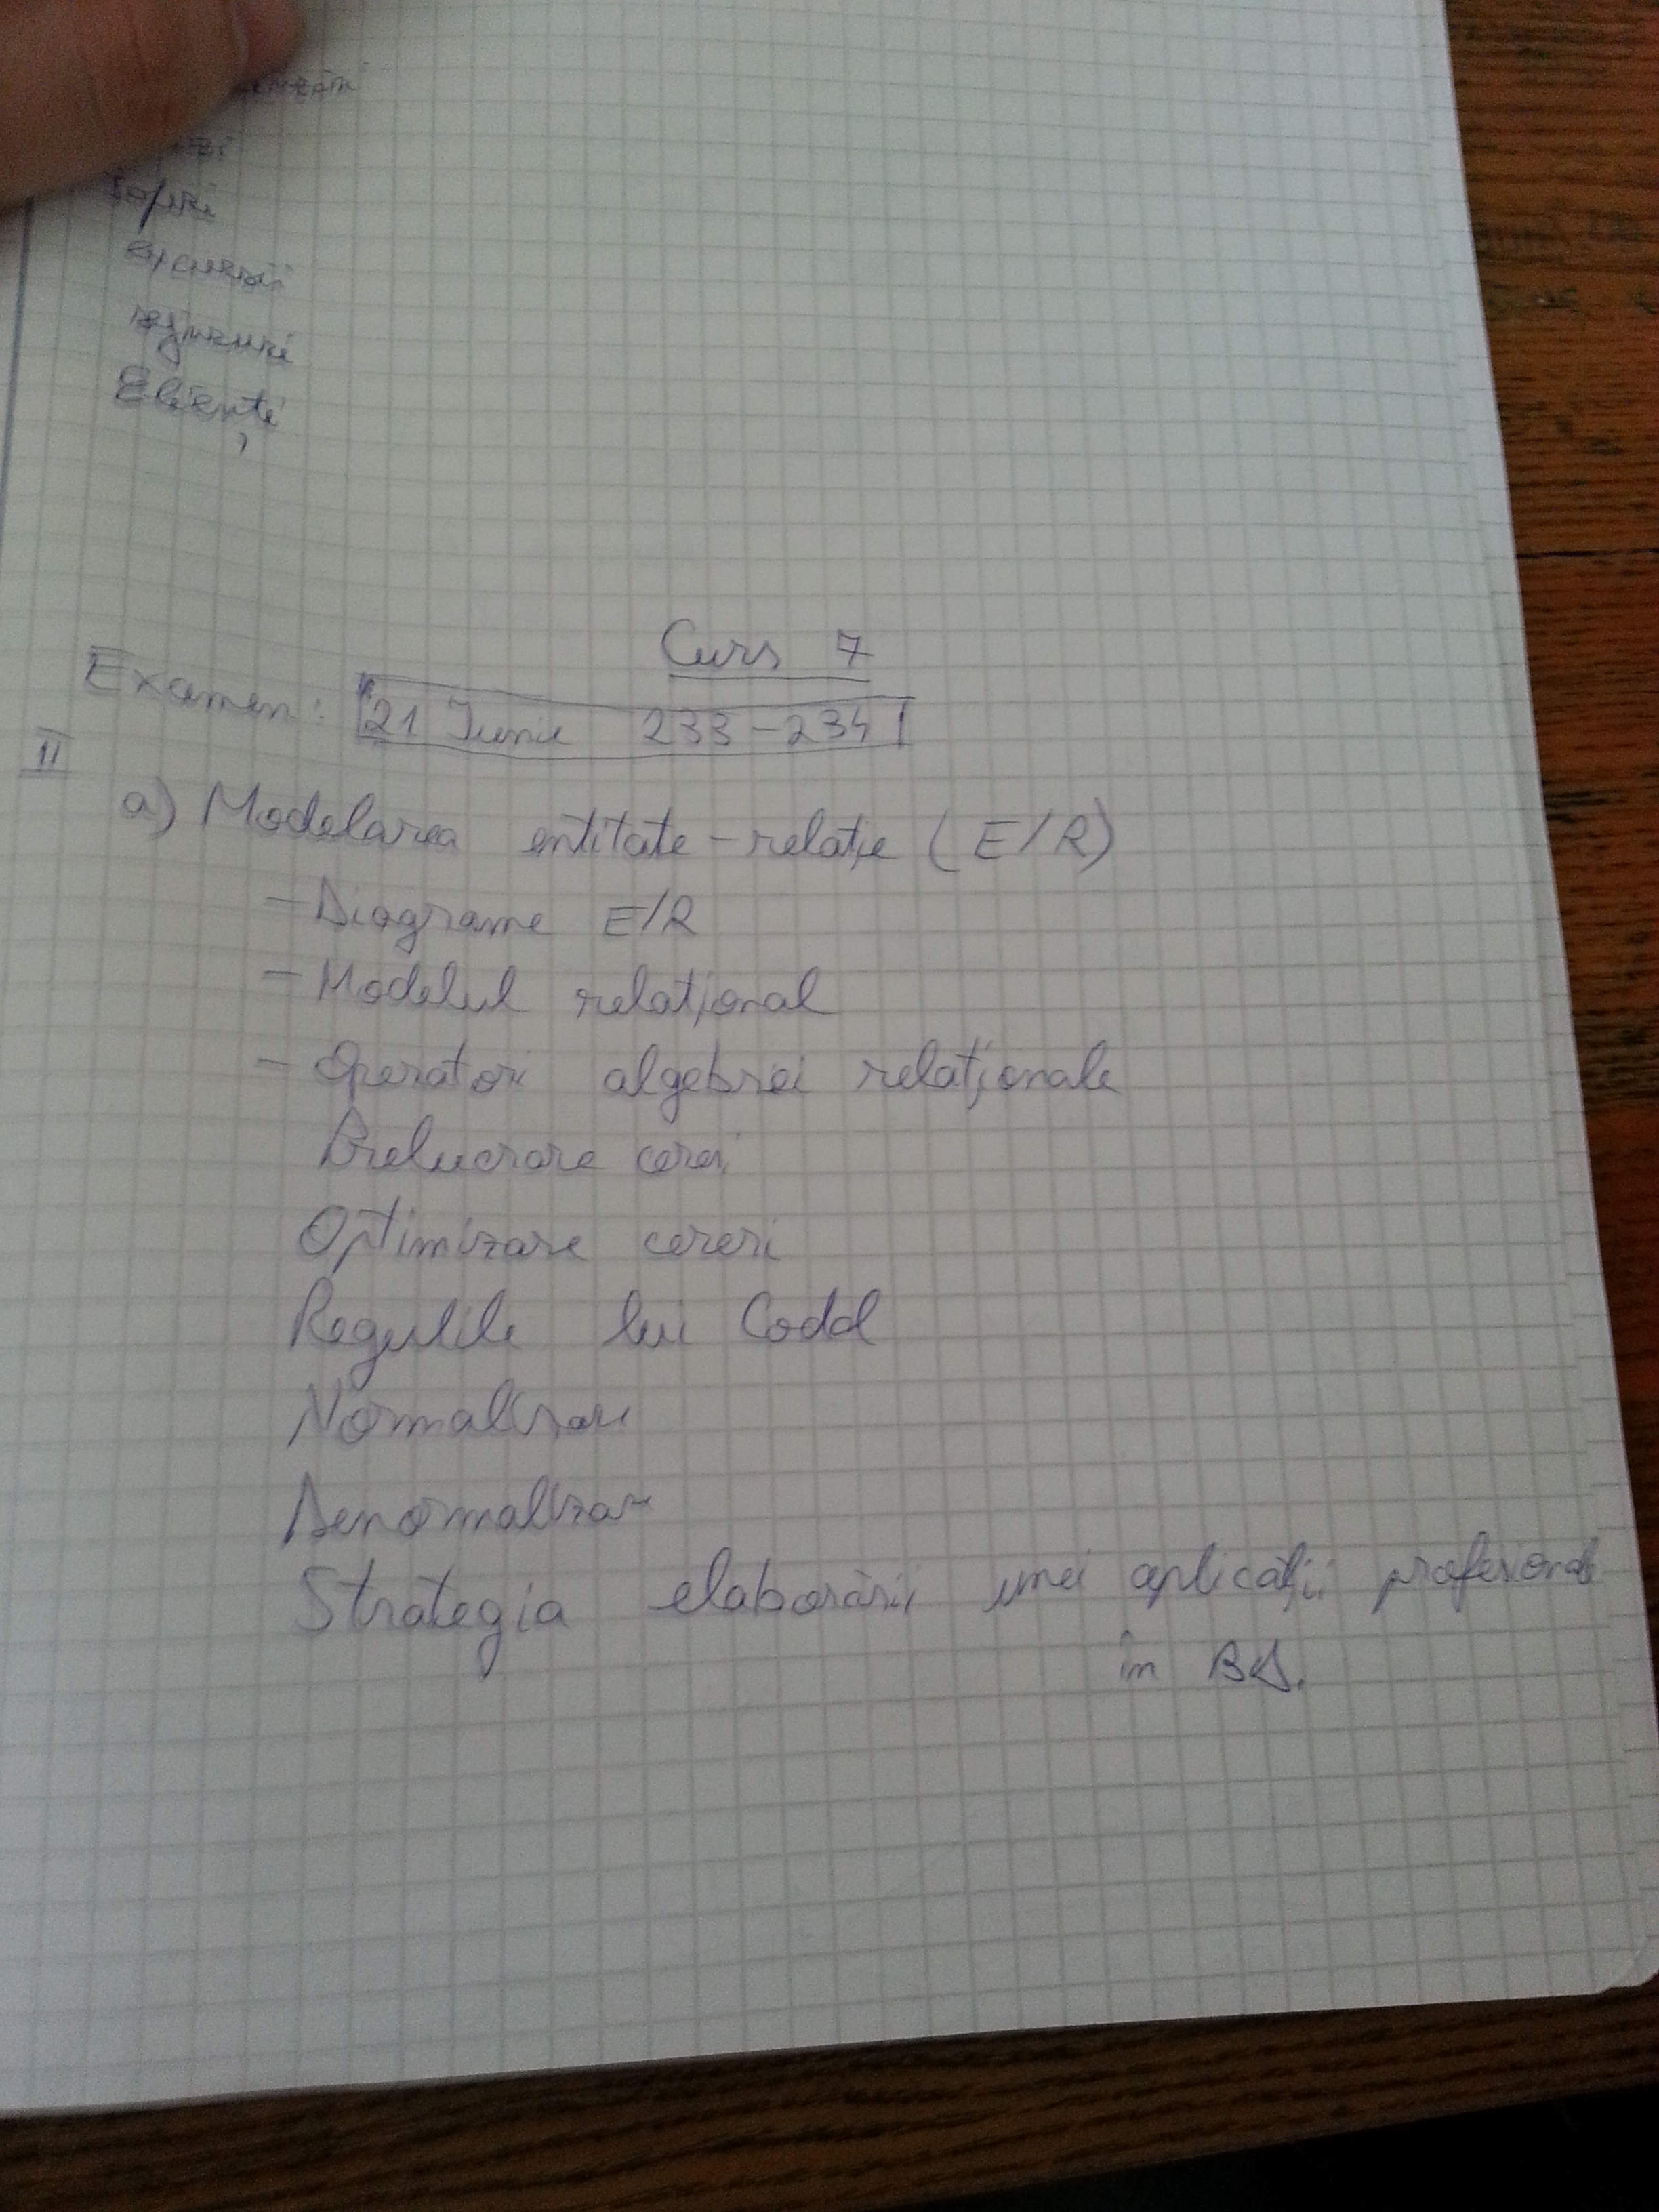 excursii
Clienți
Curs 7
Examen: 21 Iunie 233-234
II
a) Modelarea entitate-relație (E/R)
- Diagrame E/R
- Modelul relațional
- Operatori algebrei relaționale
Prelucrare cereri
Optimizare cereri
Regulile lui Codd
Normalizare
Denormalizare
Strategia elaborării unei aplicații profesionale
în BD.